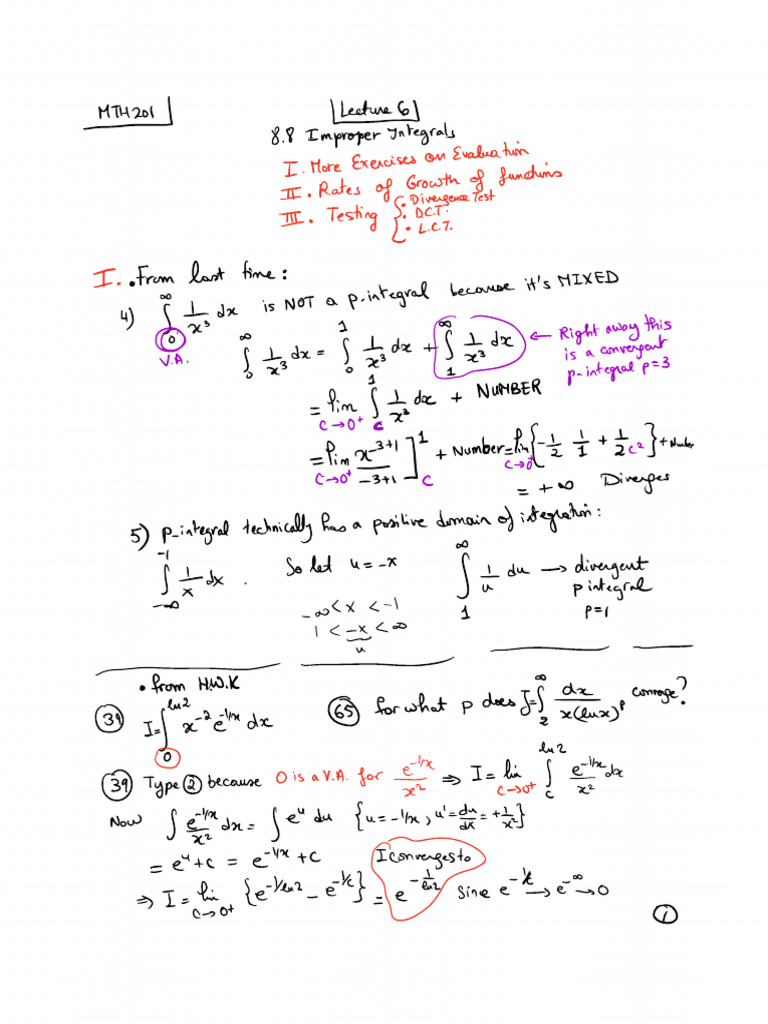 MTH201
Lecture 6
8.8 Improper Integrals
I. More Exercises on Evaluation
II. Rates of Growth of functions
III. Testing { • Divergence Test
• D.C.T.
• L.C.T.
I. • From last time:
4) ∫_0^∞ 1/x³ dx is NOT a p-integral because it's MIXED
V.A.
∫_0^∞ 1/x³ dx = ∫_0^1 1/x³ dx + ∫_1^∞ 1/x³ dx ← Right away this
is a convergent
p-integral p=3
= lim_{c→0⁺} ∫_c^1 1/x³ dx + NUMBER
= lim_{c→0⁺} x^{-3+1}/(-3+1) ]_c^1 + Number = lim_{c→0⁺} {-1/2 1/1 + 1/(2c²)} + Number
= +∞ Diverges
5) p-integral technically has a positive domain of integration:
∫_{-∞}^{-1} 1/x dx. So let u = -x ∫_1^∞ 1/u du → divergent
p integral
p=1
-∞ < x < -1
1 < -x < ∞
u
• from H.W.K
(39) I = ∫_0^{ln2} x^{-2} e^{-1/x} dx (65) for what p does J = ∫_2^∞ dx/(x(lnx)^p) converge?
(39) Type (2) because 0 is a V.A. for e^{-1/x}/x² ⇒ I = lim_{c→0⁺} ∫_c^{ln2} e^{-1/x}/x² dx
Now ∫ e^{-1/x}/x² dx = ∫ e^u du {u = -1/x, u' = du/dx = +1/x²}
= e^u + c = e^{-1/x} + c I converges to
⇒ I = lim_{c→0⁺} {e^{-1/ln2} - e^{-1/c}} = e^{-1/ln2} Sine e^{-1/c} → e^{-∞} → 0
(1)